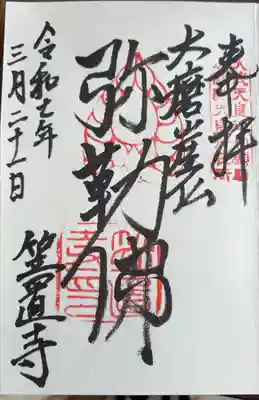 奉拝
大磨崖
弥勒佛
令和七年
三月二十一日
笠置寺